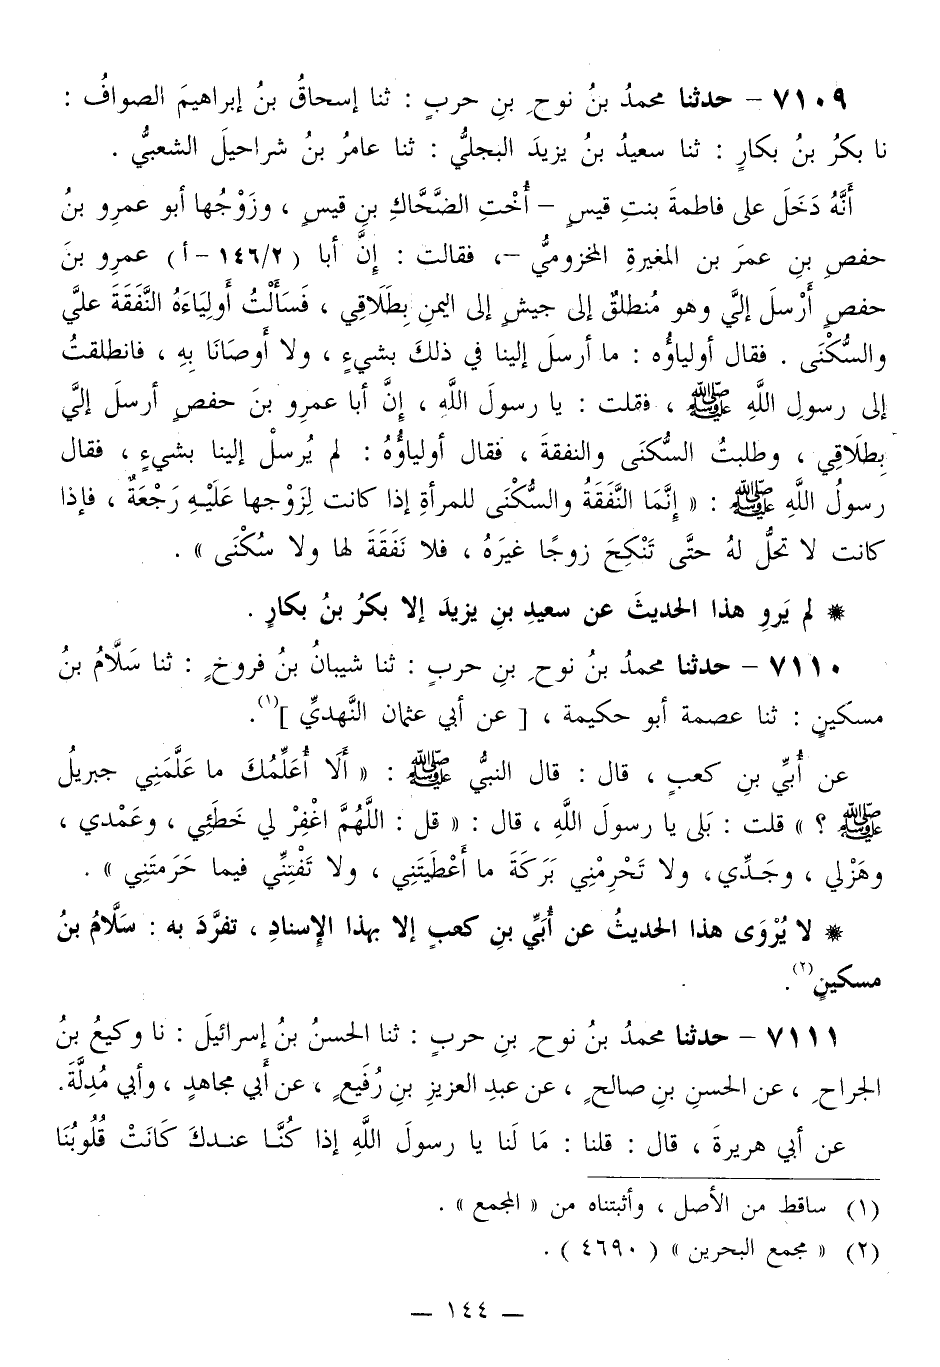 ٧١٠٩ – حدثنا محمدُ بنُ نوحِ بنِ حربٍ : ثنا إسحاقُ بنُ إبراهيمَ الصوافُ :
نا بكرُ بنُ بكارٍ : ثنا سعيدُ بنُ يزيدَ البجليُّ : ثنا عامرُ بنُ شراحيلَ الشعبيُّ .
أَنَّهُ دَخَلَ على فاطمةَ بنتِ قيسٍ – أُخْتِ الضَّحَّاكِ بنِ قيسٍ ، وزَوْجُها أبو عمرِو بنُ
حفصِ بنِ عمرَ بنِ المغيرةِ المخزوميُّ –، فقالت : إِنَّ أبا ( ١٤٦/٢ – أ ) عمرِو بنَ
حفصٍ أَرْسلَ إليَّ وهو مُنطلقٌ إلى جيشٍ إلى اليمنِ بِطَلَاقِي ، فَسَأَلْتُ أَولِيَاءَهُ النَّفَقَةَ عليَّ
والسُّكْنَى . فقال أولياؤُه : ما أرسلَ إلينا في ذلكَ بشيءٍ ، ولا أَوصَانَا بِهِ ، فانطلقتُ
إلى رسولِ اللَّهِ ﷺ ، فقلت : يا رسولَ اللَّهِ ، إِنَّ أبا عمرِو بنَ حفصٍ أرسلَ إليَّ
بِطَلَاقِي ، وطلبتُ السُّكنَى والنفقةَ ، فقال أولياؤُهُ : لم يُرسلْ إلينا بشيءٍ ، فقال
رسولُ اللَّهِ ﷺ : « إِنَّمَا النَّفَقَةُ والسُّكْنَى للمرأةِ إذا كانت لِزَوْجها عَلَيْهِ رَجْعَةٌ ، فإذا
كانت لا تحلُّ لهُ حتَّى تَنْكِحَ زوجًا غيرَهُ ، فلا نَفَقَةَ لها ولا سُكْنَى » .
* لم يَروِ هذا الحديثَ عن سعيدِ بنِ يزيدَ إلا بكرُ بنُ بكارٍ .
٧١١٠ – حدثنا محمدُ بنُ نوحِ بنِ حربٍ : ثنا شيبانُ بنُ فروخٍ : ثنا سَلَّامُ بنُ
مسكينٍ : ثنا عصمة أبو حكيمة ، [ عن أبي عثمان النَّهديِّ ](١).
عن أُبيِّ بنِ كعبٍ ، قال : قال النبيُّ ﷺ : « أَلَا أُعَلِّمُكَ ما عَلَّمَنِي جبريلُ
ﷺ ؟ » قلت : بَلى يا رسولَ اللَّهِ ، قال : « قل : اللَّهُمَّ اغْفِرْ لي خَطَئِي ، وعَمْدي ،
وهَزْلي ، وجَـدِّي، ولا تَحْرِمْنِي بَرَكَةَ ما أَعْطَيتَنِي ، ولا تَفْتِنِّي فيما حَرَمتَنِي » .
* لا يُرْوَى هذا الحديثُ عن أُبَيِّ بنِ كعبٍ إلا بهذا الإِسنادِ ، تفرَّدَ به : سَلَّامُ بنُ
مسكينٍ(٢).
٧١١١ – حدثنا محمدُ بنُ نوحِ بنِ حربٍ : ثنا الحسنُ بنُ إسرائيلَ : نا وكيعُ بنُ
الجراحِ ، عن الحسنِ بنِ صالحٍ ، عن عبدِ العزيزِ بنِ رُفَيعٍ ، عن أَبي مجاهدٍ ، وأبي مُدِلَّةَ.
عن أبي هريرةَ ، قال : قلنا : مَا لَنا يا رسولَ اللَّهِ إذا كُنَّـا عنـدكَ كَانَتْ قُلُوبُنَا
(١) ساقط من الأصل ، وأثبتناه من « المجمع » .
(٢) « مجمع البحرين » ( ٤٦٩٠ ) .
– ١٤٤ –